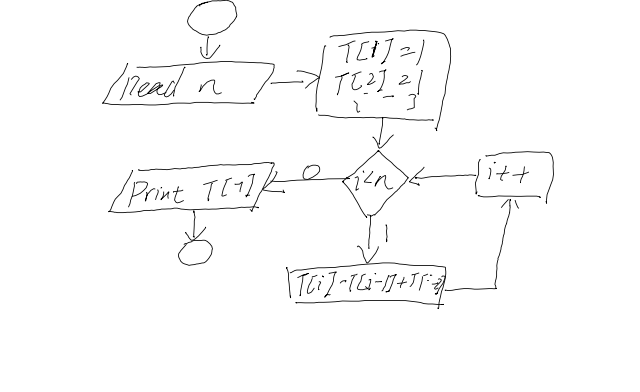 Read n
T[1]=1
T[2]=1
i=3
i<n
0
Print T[1]
i++
1
T[i]=T[i-1]+T[i-2]